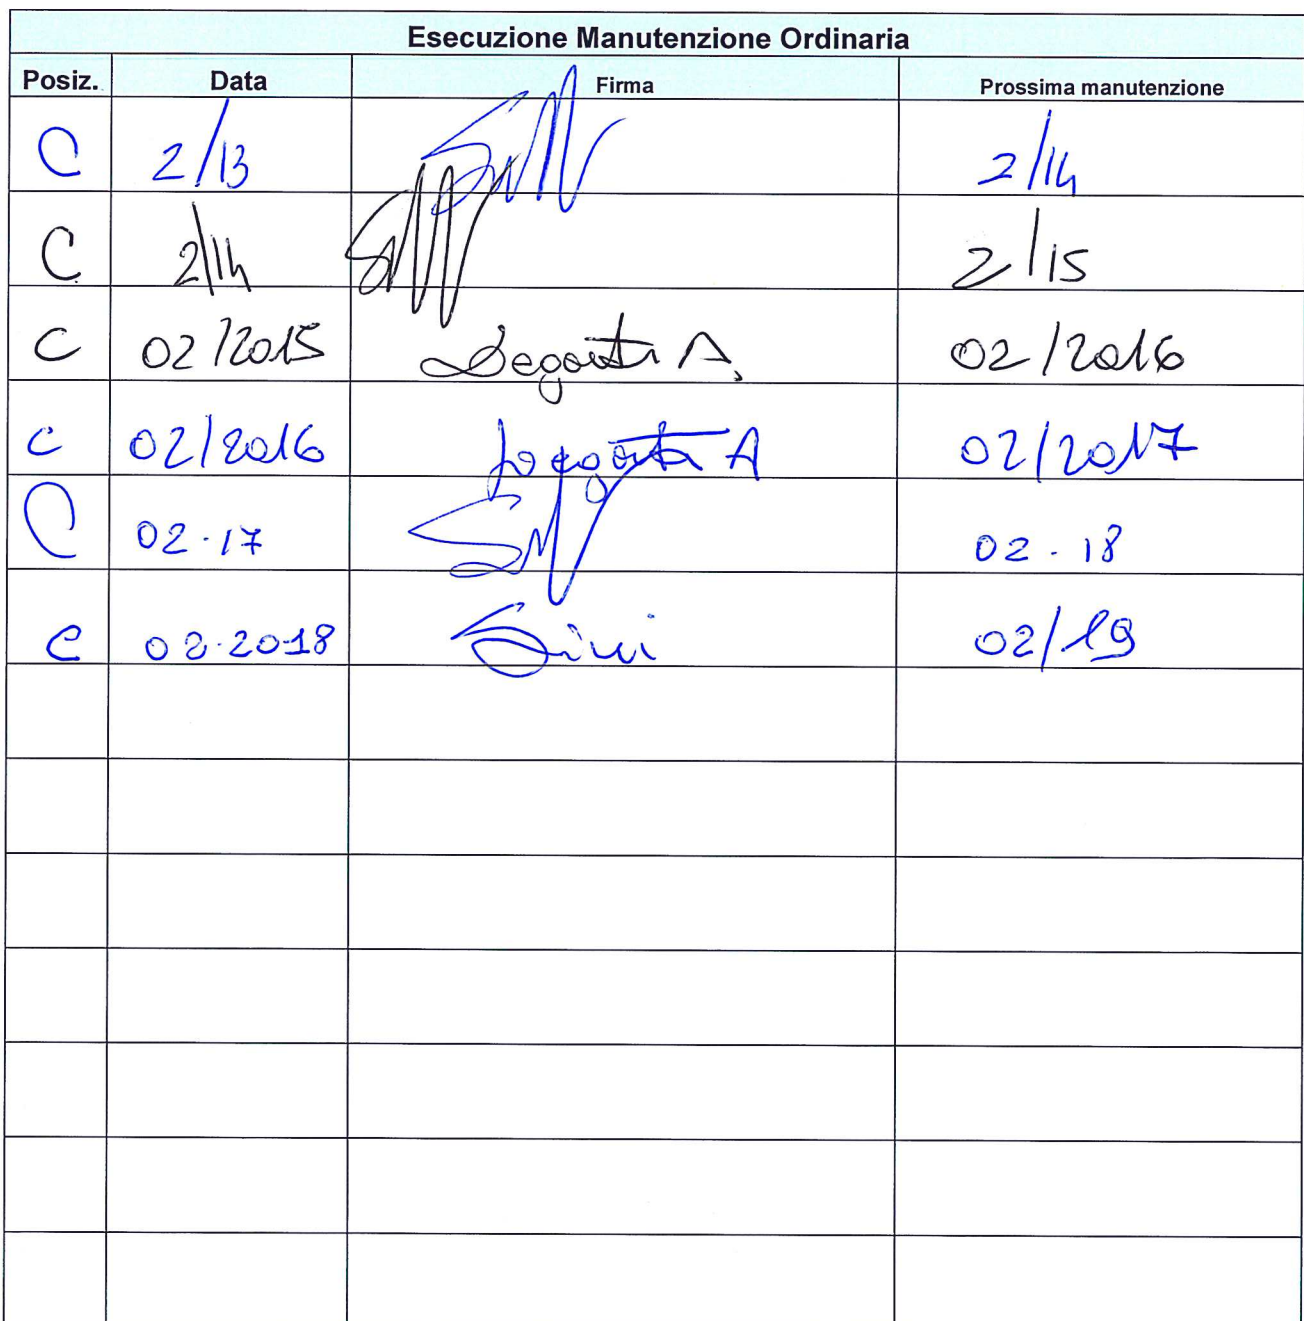 Esecuzione Manutenzione Ordinaria
Posiz. Data Firma Prossima manutenzione
C 2/13 2/14
C 2/14 2/15
C 02/2015 A. 02/2016
C 02/2016 A 02/2017
C 02.17 02.18
C 02.2018 Sini 02/19